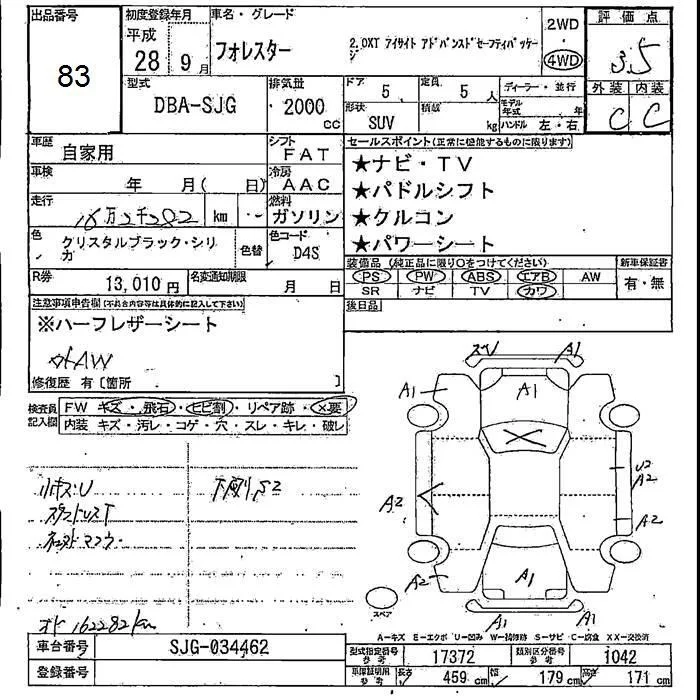 出品番号
83
初度登録年月
平成
28年9月
車名・グレード
フォレスター
2.0XT アイサイト アドバンスドセーフティパッケージ
2WD
4WD
評価点
3.5
外装 内装
C C
型式
DBA-SJG
排気量
2000
cc
ドア
5
定員
5人
形状
SUV
積載
kg
ディーラー・並行
モデル年式 年
ハンドル 左・右
車歴
自家用
シフト
FAT
車検
年 月( 日)
冷房
AAC
走行
16万2千282 km
燃料
ガソリン
色
クリスタルブラック・シリカ
色替
色コード
D4S
R券
13,010円
名変通知期限
月 日
セールスポイント(正常に機能するものに限ります)
★ナビ・TV
★パドルシフト
★クルコン
★パワーシート
装備品(純正品に限り○をつけてください)
PS PW ABS エアB AW
SR ナビ TV カワ
新車保証書
有・無
後日品
注意事項申告欄(不具合内容等は具体的に記入して下さい)
※ハーフレザーシート
外AW
修復歴 有〔箇所 〕
検査員記入欄
FW キズ・飛石・ヒビ割・リペア跡・×要
内装 キズ・汚レ・コゲ・穴・スレ・キレ・破レ
小キズ.U
下廻りS2
オド 162282km
スペア
A1
A1
A1
A1
A2
U2
A2
A2
A2
A1
A1
A1
A1
A―キズ E―エクボ U―凹み W―補修跡 S―サビ C―腐食 XX―交換済
車台番号
SJG-034462
登録番号
型式指定番号 参考
17372
類別区分番号 参考
1042
車庫証明用 参考
長さ 459cm
幅 179cm
高さ 171cm